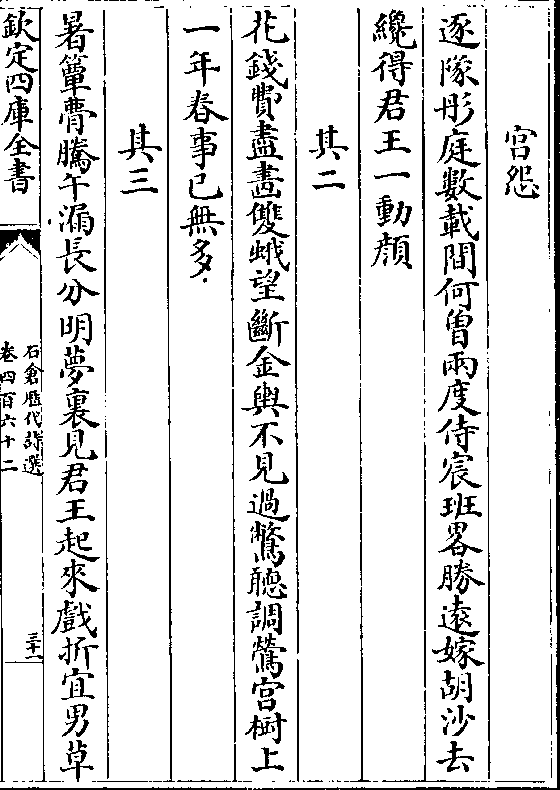 宮怨
逐隊彤庭數載間何曾兩度侍宸班畧勝遠嫁胡沙去
纔得君王一動顔
其二
花錢費盡畫雙蛾望斷金輿不見過驚聽調鶯宮樹上
一年春事已無多
其三
暑簟瞢騰午漏長分明夢裏見君王起來戲折宜男草
欽定四庫全書
石倉歷代詩選
卷四百六十二
三十一